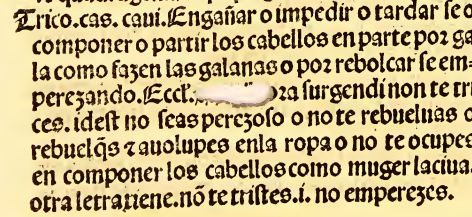 Trico.cas. caui. Engañar o impedir o tardar se o
componer o partir los cabellos en parte por ga
la como fazen las galanas o por rebolcar se em=
perezando. Eccl. ora surgendi non te tri
ces. idest no seas perezoso o no te rebueluas o
rebuelq̃s ⁊ auolupes enla ropa o no te ocupes
en componer los cabellos como muger laciua.
otra letra tiene. nõ te tristes .i. no emperezes.